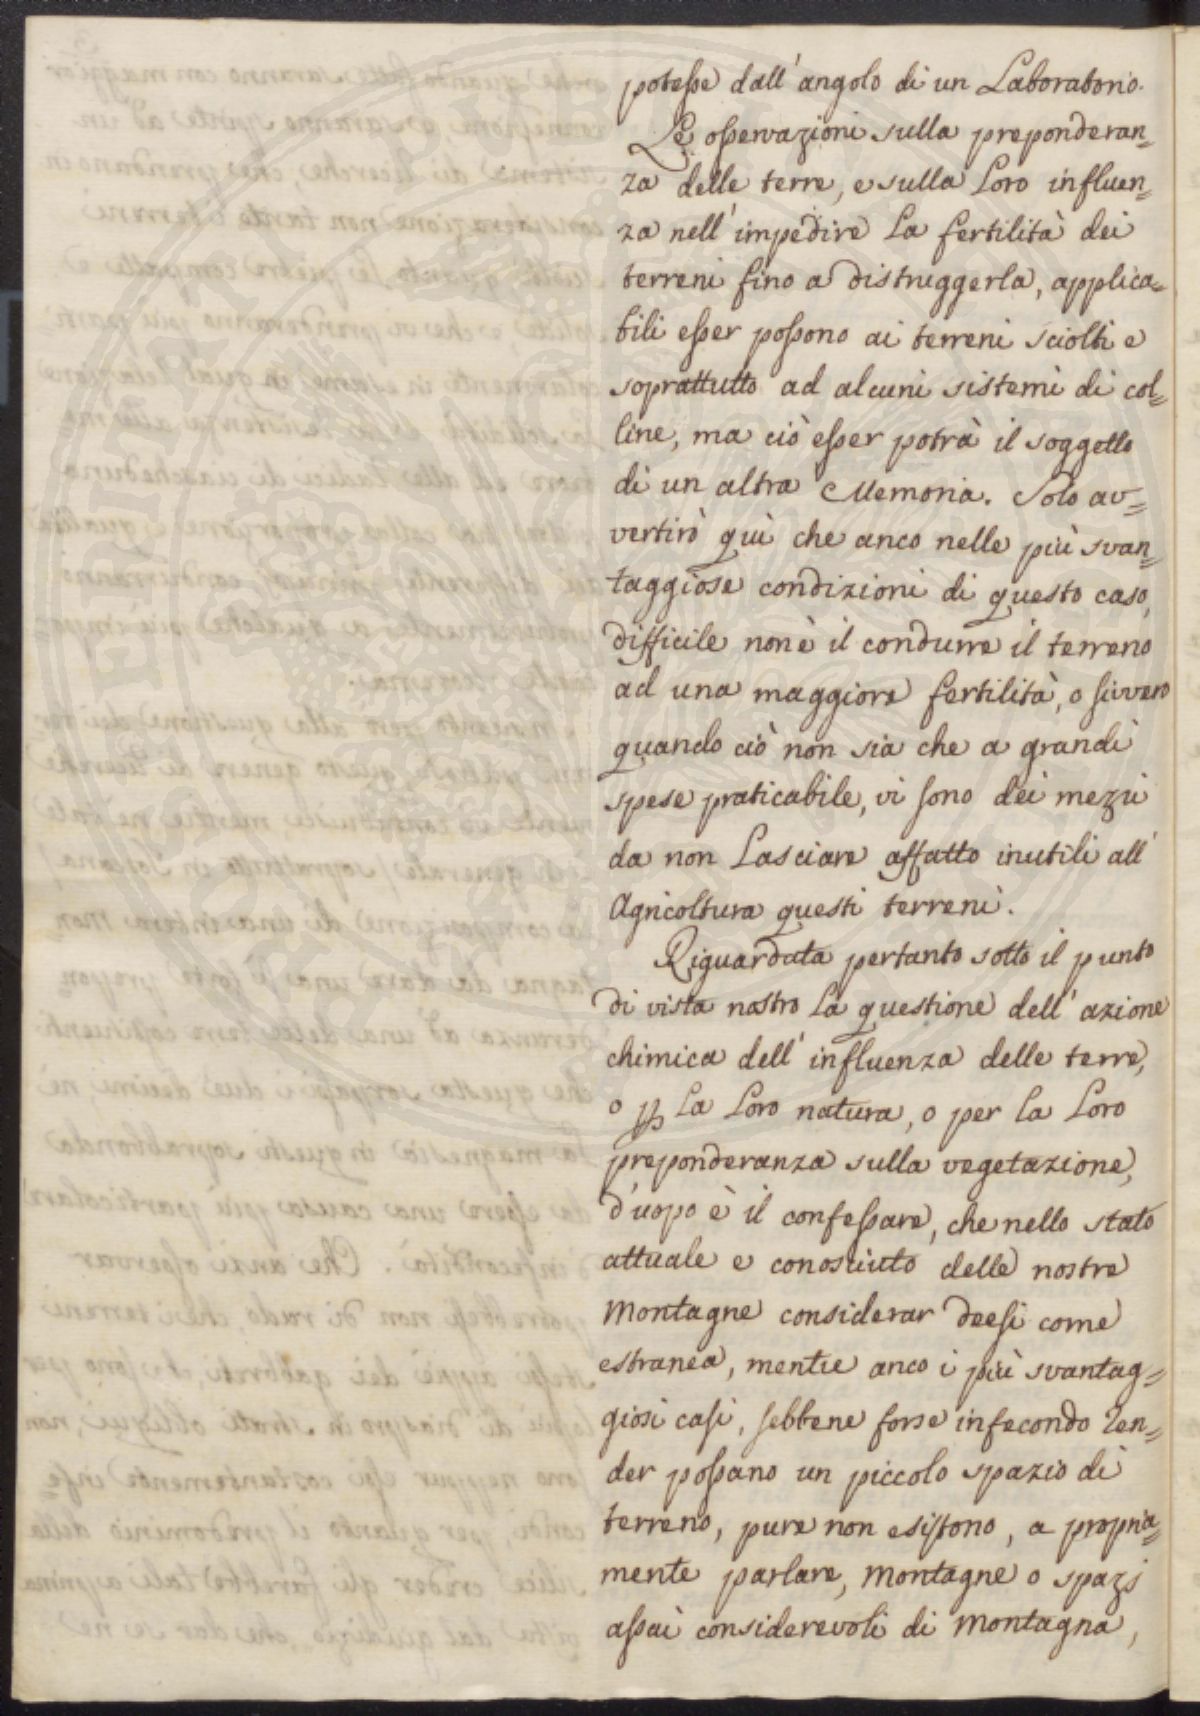 potesse dall'angolo di un Laboratorio.
Le osservazioni sulla preponderan=
za delle terre, e sulla Loro influen=
za nell'impedire La fertilità dei
terreni fino a distruggerla, applica=
bili esser possono ai terreni sciolti e
soprattutto ad alcuni sistemi di col=
line, ma ciò esser potrà il soggetto
di un altra Memoria. Solo av=
vertirò quì che anco nelle più svan=
taggiose condizioni di questo caso,
difficile non è il condurre il terreno
ad una maggiore fertilità, o sivvero
quando ciò non sia che a grandi
spese praticabile, vi sono dei mezzi
da non Lasciare affatto inutili all'
Agricoltura questi terreni.
Riguardata pertanto sotto il punto
di vista nostro La questione dell'azione
chimica dell'influenza delle terre,
o La Loro natura, o per la Loro
preponderanza sulla vegetazione,
d'uopo è il confessare, che nello stato
attuale e conosciuto delle nostre
Montagne considerar deesi come
estranea, mentre anco i più svantag=
giosi casi, sebbene forse infecondo ren=
der possano un piccolo spazio di
terreno, pure non esistono, a propria=
mente parlare, Montagne o spazj
assai considerevoli di Montagna,